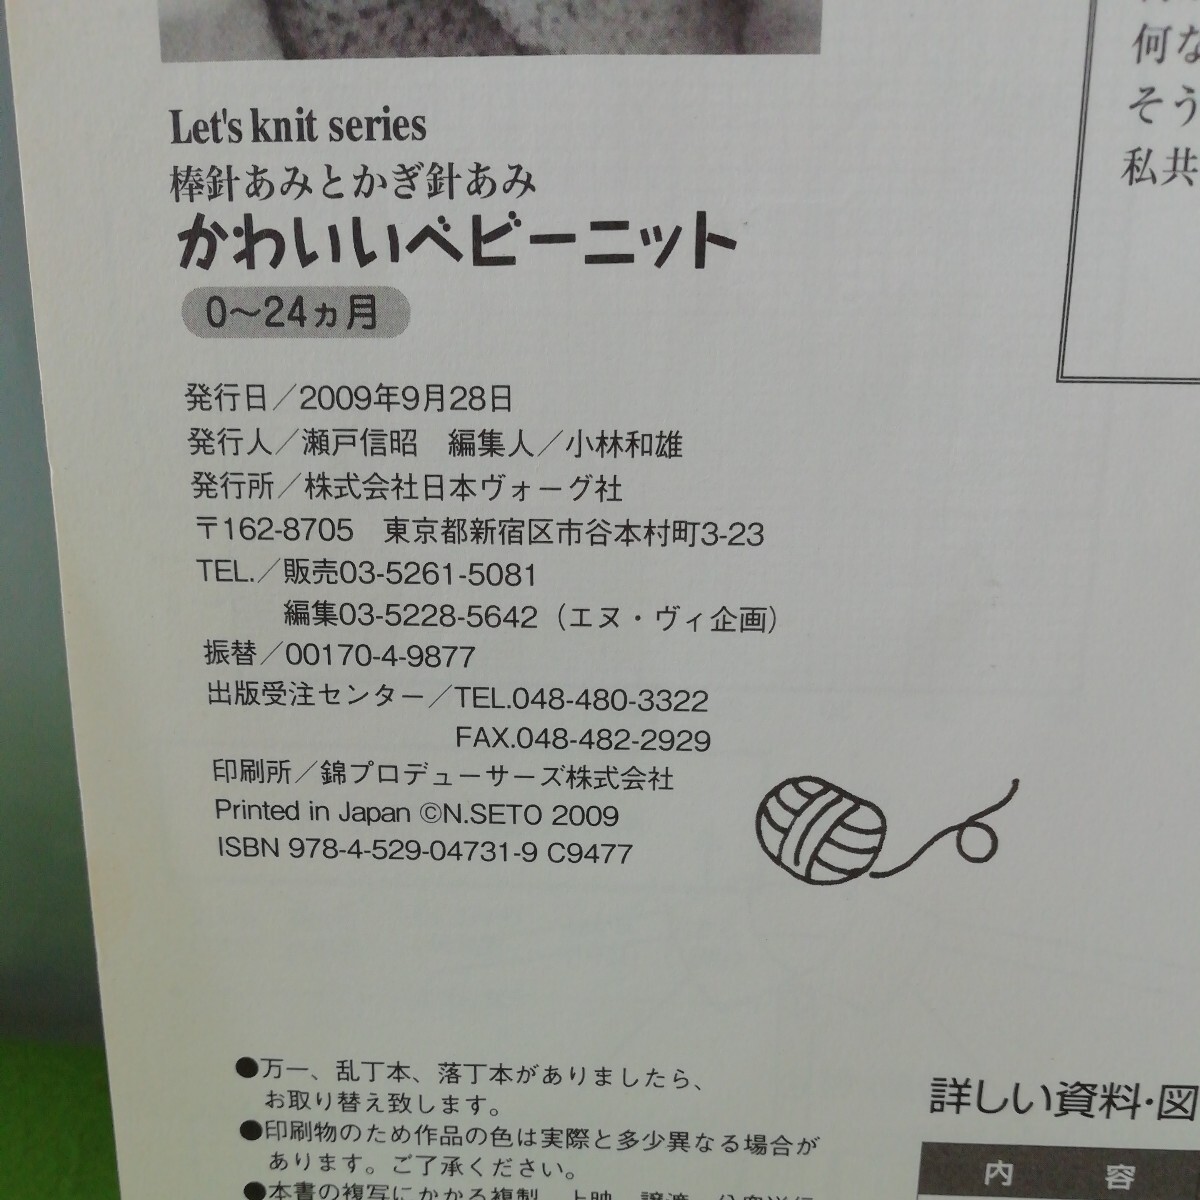 Let's knit series
棒針あみとかぎ針あみ
かわいいベビーニット
0〜24ヵ月
発行日／2009年9月28日
発行人／瀬戸信昭　編集人／小林和雄
発行所／株式会社日本ヴォーグ社
〒162-8705　東京都新宿区市谷本村町3-23
TEL.／販売03-5261-5081
編集03-5228-5642（エヌ・ヴィ企画）
振替／00170-4-9877
出版受注センター／TEL.048-480-3322
FAX.048-482-2929
印刷所／錦プロデューサーズ株式会社
Printed in Japan ©N.SETO 2009
ISBN 978-4-529-04731-9 C9477
●万一、乱丁本、落丁本がありましたら、
お取り替え致します。
●印刷物のため作品の色は実際と多少異なる場合が
あります。ご了承ください。
●本書の複写にかかる複製、上映、譲渡、公衆送信
何な
そう
私共
詳しい資料・図
内　容